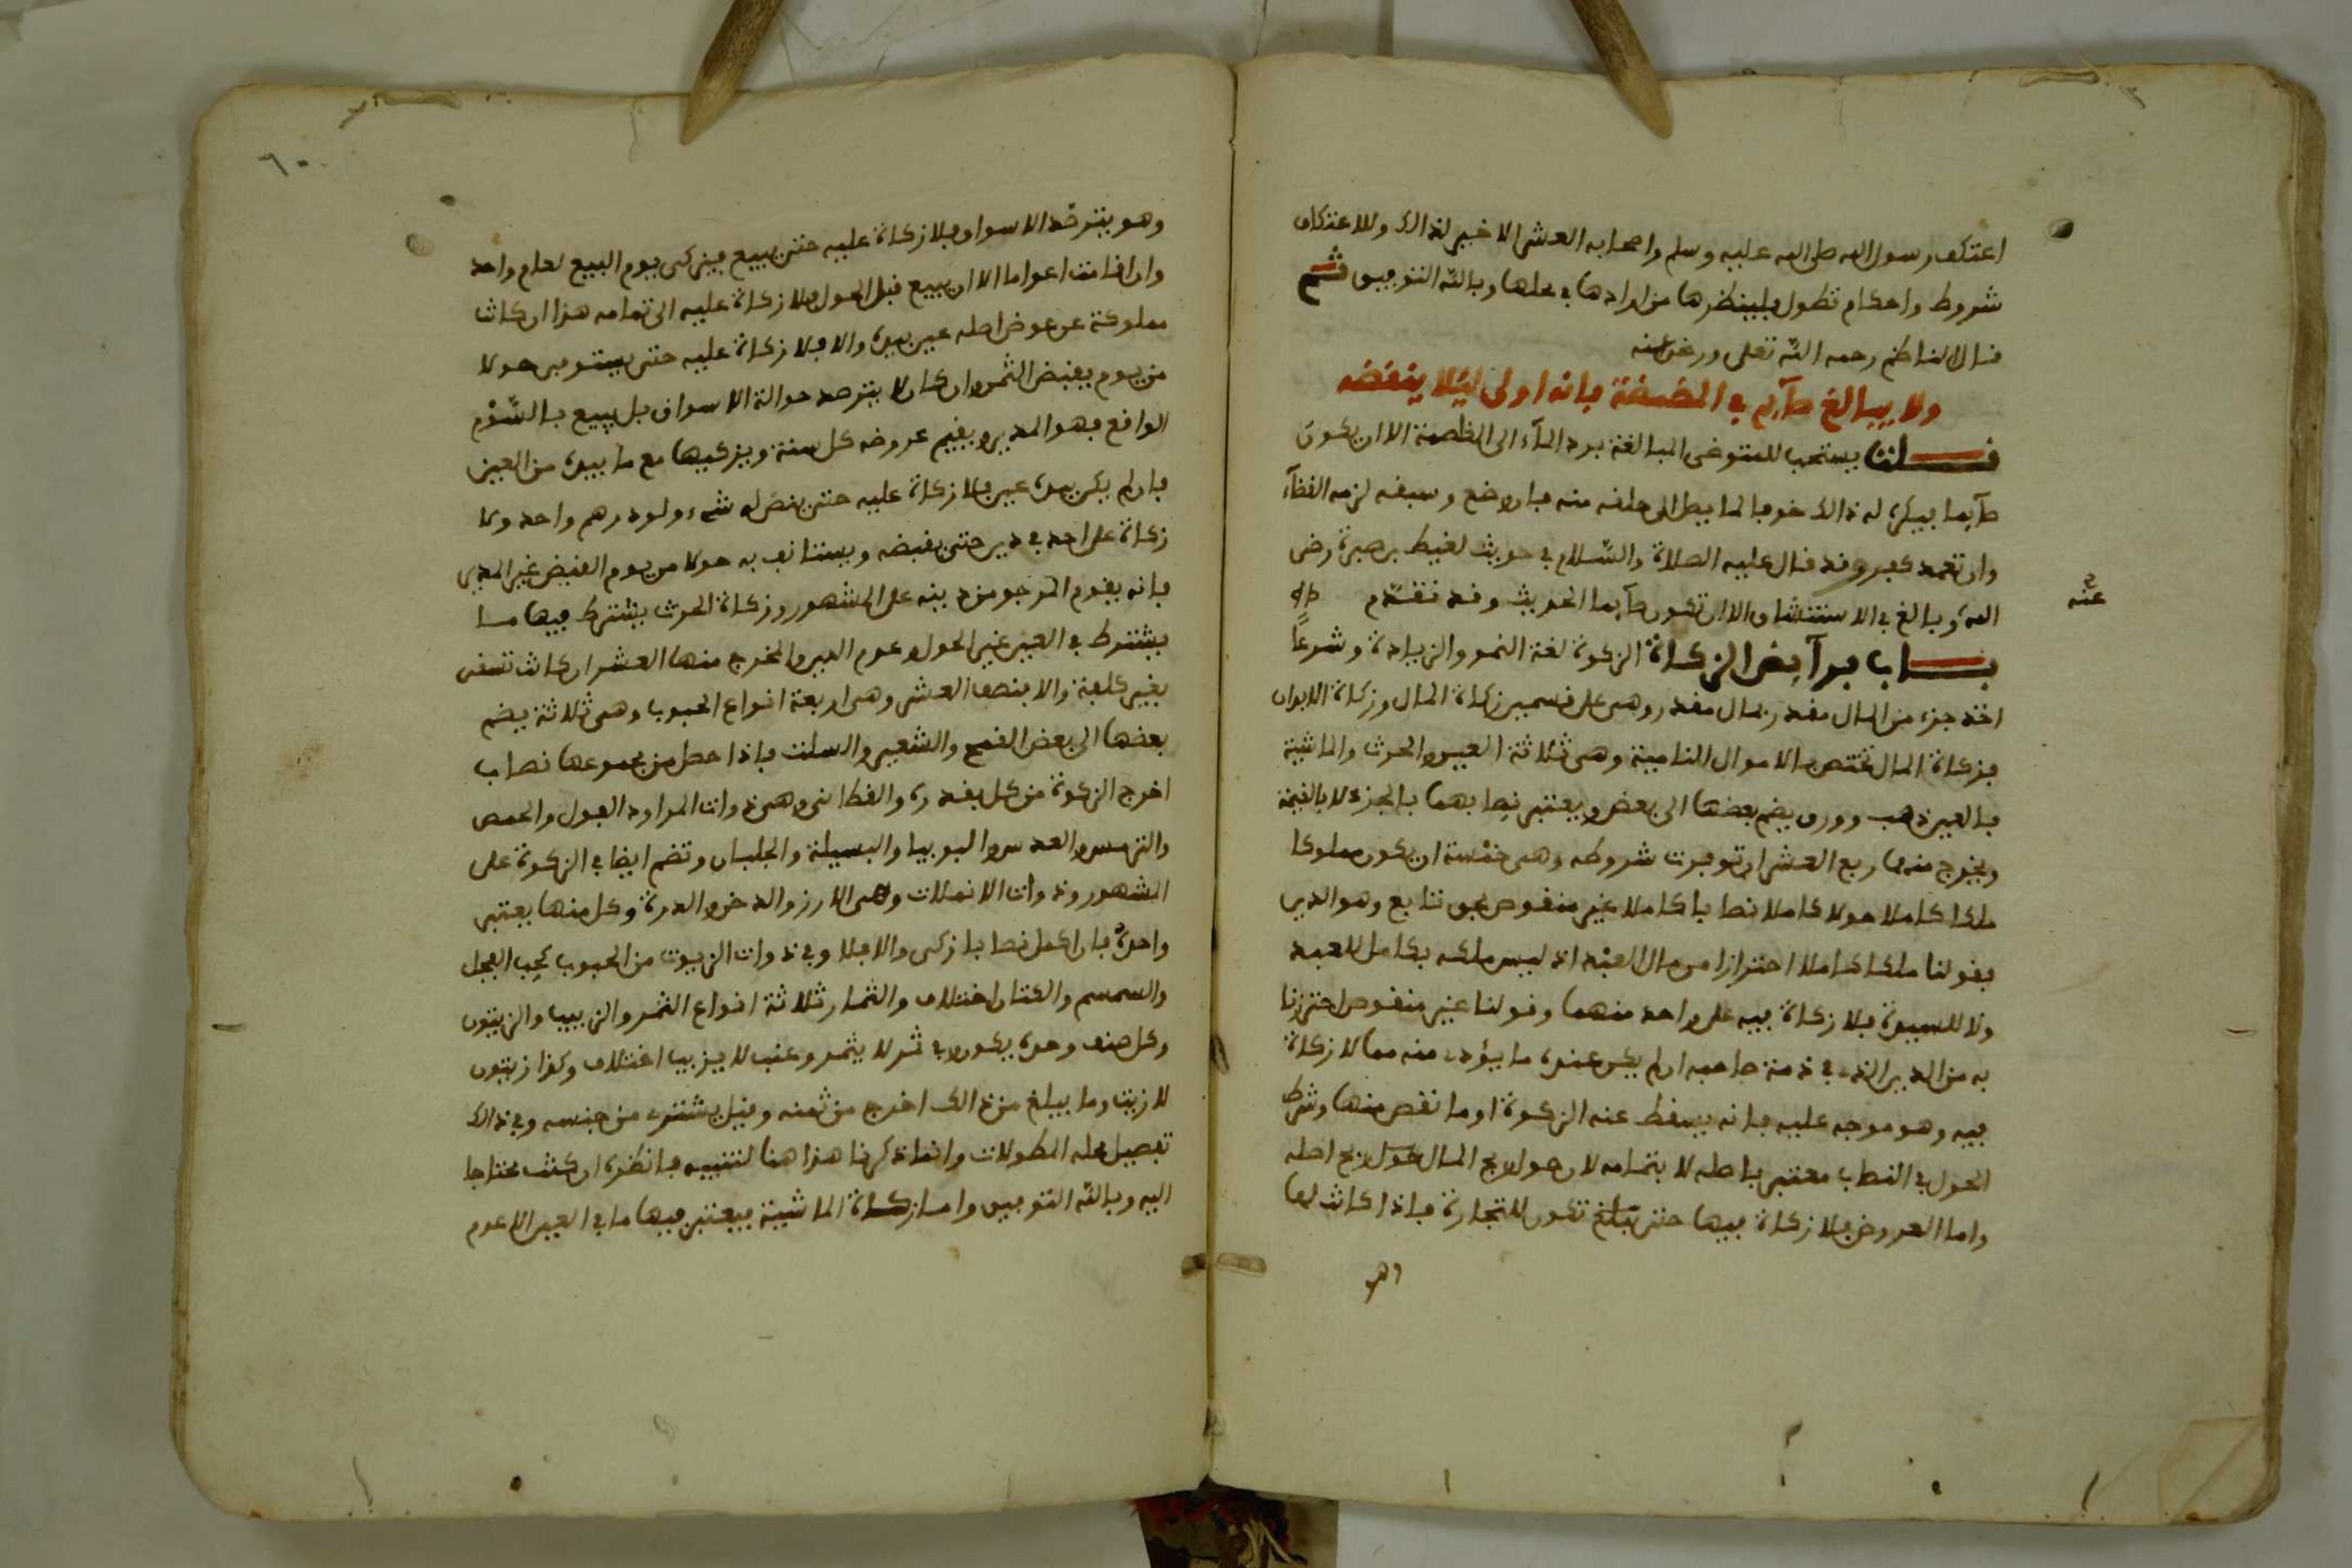 اعتكف رسول الله صلى الله عليه وسلم واصحابه العشر الاخير لذالك وللاعتكاف
شروط واحكام تطول فلينظرها من ارادها في محلها وبالله التوفيق ثم
قال الناظم رحمه الله تعلى ورضي عنه
ولا يبالغ صآيم في المضمضة فانه اولى ليلا ينقضه
قلت يستحب للمتوضى المبالغة برد المآء الى الغلصمة الا ان يكون
صآيما فيكره له ذالك خوفا لما يصل الى حلقه منه فان وقع وسبقه لزمه القضآء
وان تعمد كفر وقد قال عليه الصلاة والسلام في حديث لقيط بن صبرة رضى
الله وبالغ في الاستنشاق الا ان تكون صآيما الحديث وقد تقدم
عنه
باب فرآيض الزكاة الزكوة لغة النمو والزيادة وشرعا
اخذ جزء من المال مقدر بمال مقدر وهي على قسمين زكاة المال وزكاة الابدان
فزكاة المال تختص بالاموال النامية وهي ثلاثة العين والحرث والماشية
فالعين ذهب وورق يضم بعضها الى بعض ويعتبر نصابهما بالجزء لا بالقيمة
ويخرج منهما ربع العشر ان توفرت شروطه وهي خمسة ان يكون مملوكا
ملكا كاملا حولا كاملا نصابا كاملا غير منقوص بحق تتابع وهو الدين
فقولنا ملكا كاملا احترازا من مال العبد اذ ليس ملكه بكامل للعبد
ولا للسيد فلا زكاة فيه على واحد منهما وقولنا غير منقوص احترزنا
به من الدين الذي في ذمة صاحبه ان لم يكن عنده ما يؤدي منه مما لا زكاة
فيه وهو موجه عليه فانه يسقط عنه الزكوة او ما نقص منها وشرط
الحول في النصاب معتبر باصله لا بتمامه لان حول ربح المال حول ربح اصله
واما العروض فلا زكاة فيها حتى تبلغ تكون للتجارة فاذا كانت لها
وهو
٦٠
وهو يترصد الاسواق فلا زكاة عليه حتى يبيع فيزكى يوم البيع لعام واحد
وان اقامت اعواما الا ان يبيع قبل الحول فلا زكاة عليه الى تمامه هذا ان كانت
مملوكة عن عوض اصله عين بيده والا فلا زكاة عليه حتى يستوفى حولا
من يوم يقبض الثمن وان كان لا يترصد حوالة الاسواق بل يبيع بالسوم
الواقع فهو المدير ويقيم عروضه كل سنة ويزكيها مع ما بيده من العين
فان لم يكن بيده عين فلا زكاة عليه حتى ينض له شيء ولو درهم واحد ولا
زكاة على احد في دين حتى يقبضه ويستانف به حولا من يوم القبض غير المدير
فانه يقوم المرجو من دينه على المشهور وزكاة الحرث يشترط فيها ما
يشترط في العين غير الحول وعدم الدين والمخرج منها العشر ان كانت تسقى
بغير كلفة والا فنصف العشر وهي اربعة انواع الحبوب وهي ثلاثة يضم
بعضها الى بعض القمح والشعير والسلت فاذا حصل من مجموعها نصاب
اخرج الزكوة من كل بقدره والقطانى وهي ذوات المراود الفول والحمص
والترمس والعدس واللوبيا والبسيلة والجلبان وتضم ايضا في الزكوة على
المشهور وذوات الانملات وهي الارز والدخن والدرة وكل منها يعتبر
واحده فان اكمل نصابا زكى والا فلا وفي ذوات الزيوت من الحبوب كحب الفجل
والسمسم والكتان اختلاف والثمار ثلاثة انواع التمر والزبيب والزيتون
وكل صنف وحده يكون في تمر لا يتمر وعنب لا يزبب اختلاف وكذا زيتون
لا زيت وما يبلغ من ذالك اخرج من ثمنه وقيل يشترى من جنسه وفي ذالك
تفصيل محله المطولات وانما ذكرنا هذا هنا لتنبيه فانظره ان كنت محتاجا
اليه وبالله التوفيق واما زكاة الماشية فيعتبر فيها ما في العين الا عدم